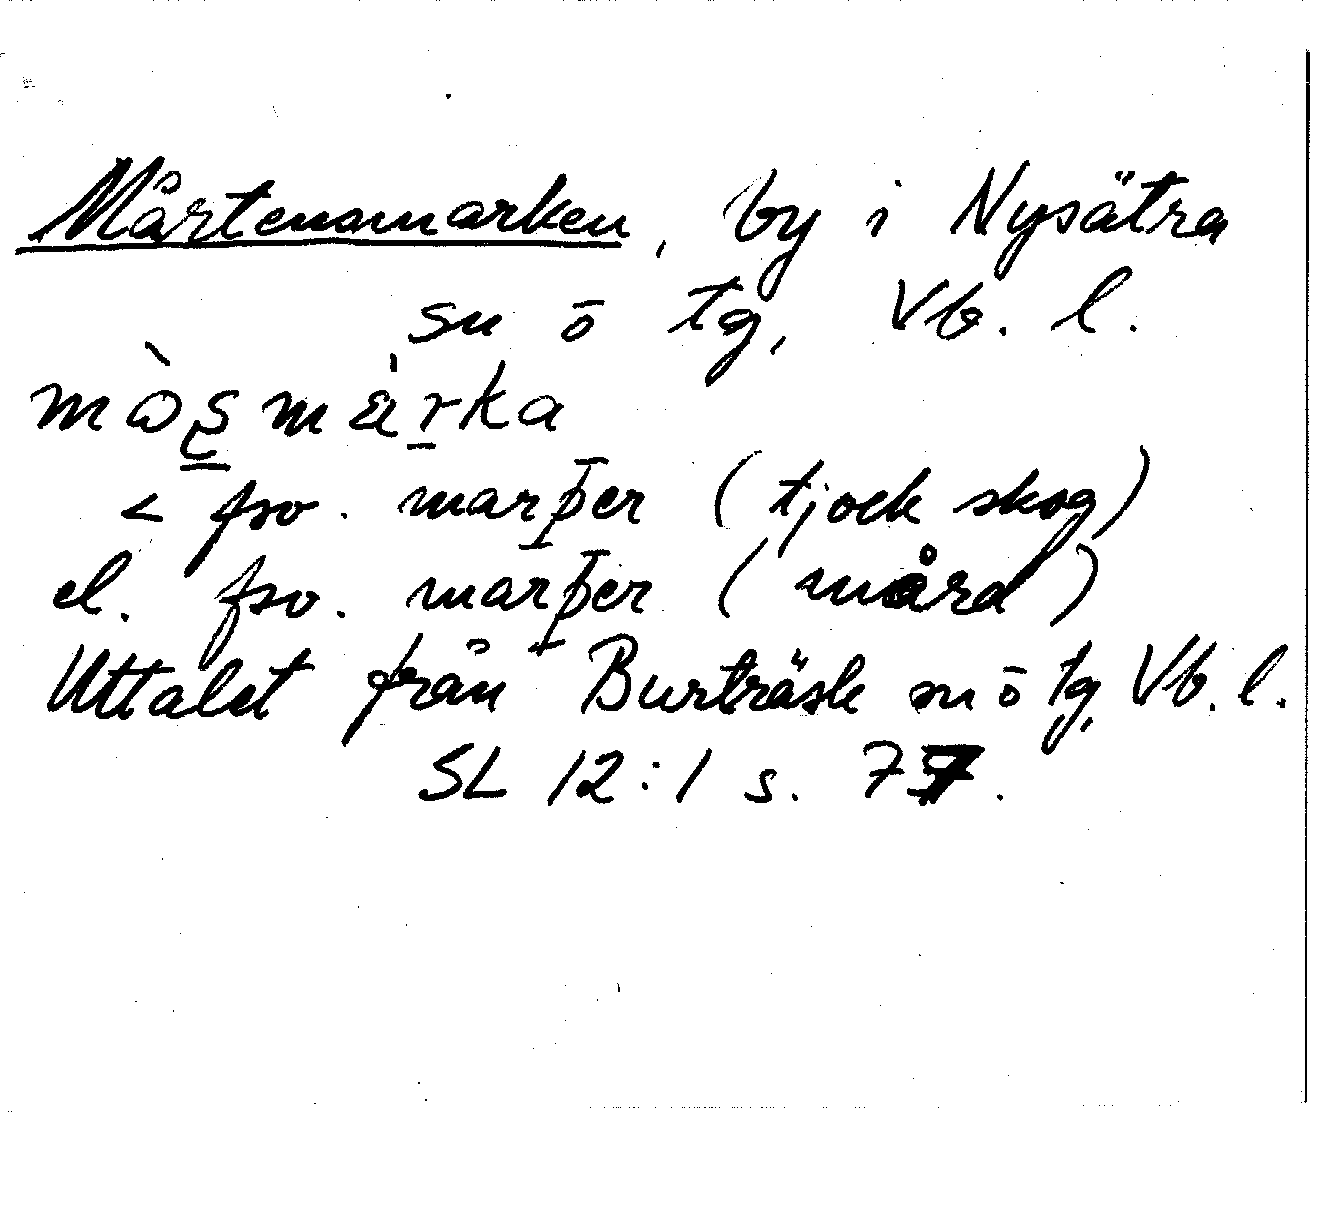 Mårtensmarken, by i Nysätra
sn o tg, Vb. l.
< fsv. marþer (tjock skog)
el. fsv. marþer (mård)
Uttalet från Burträsk sn o tg, Vb. l.
SL 12:1 s. 77.